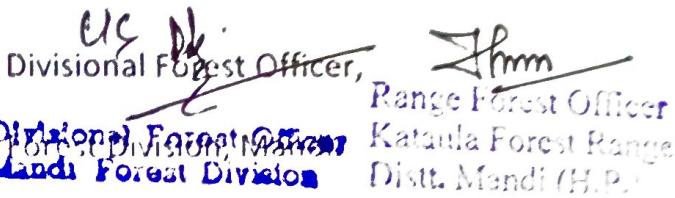 Divisional Forest Officer,
Divisional Forest Officer
Forest Division,
Mandi Forest Division
Range Forest Officer
Kataula Forest Range
Distt. Mandi (H.P.)